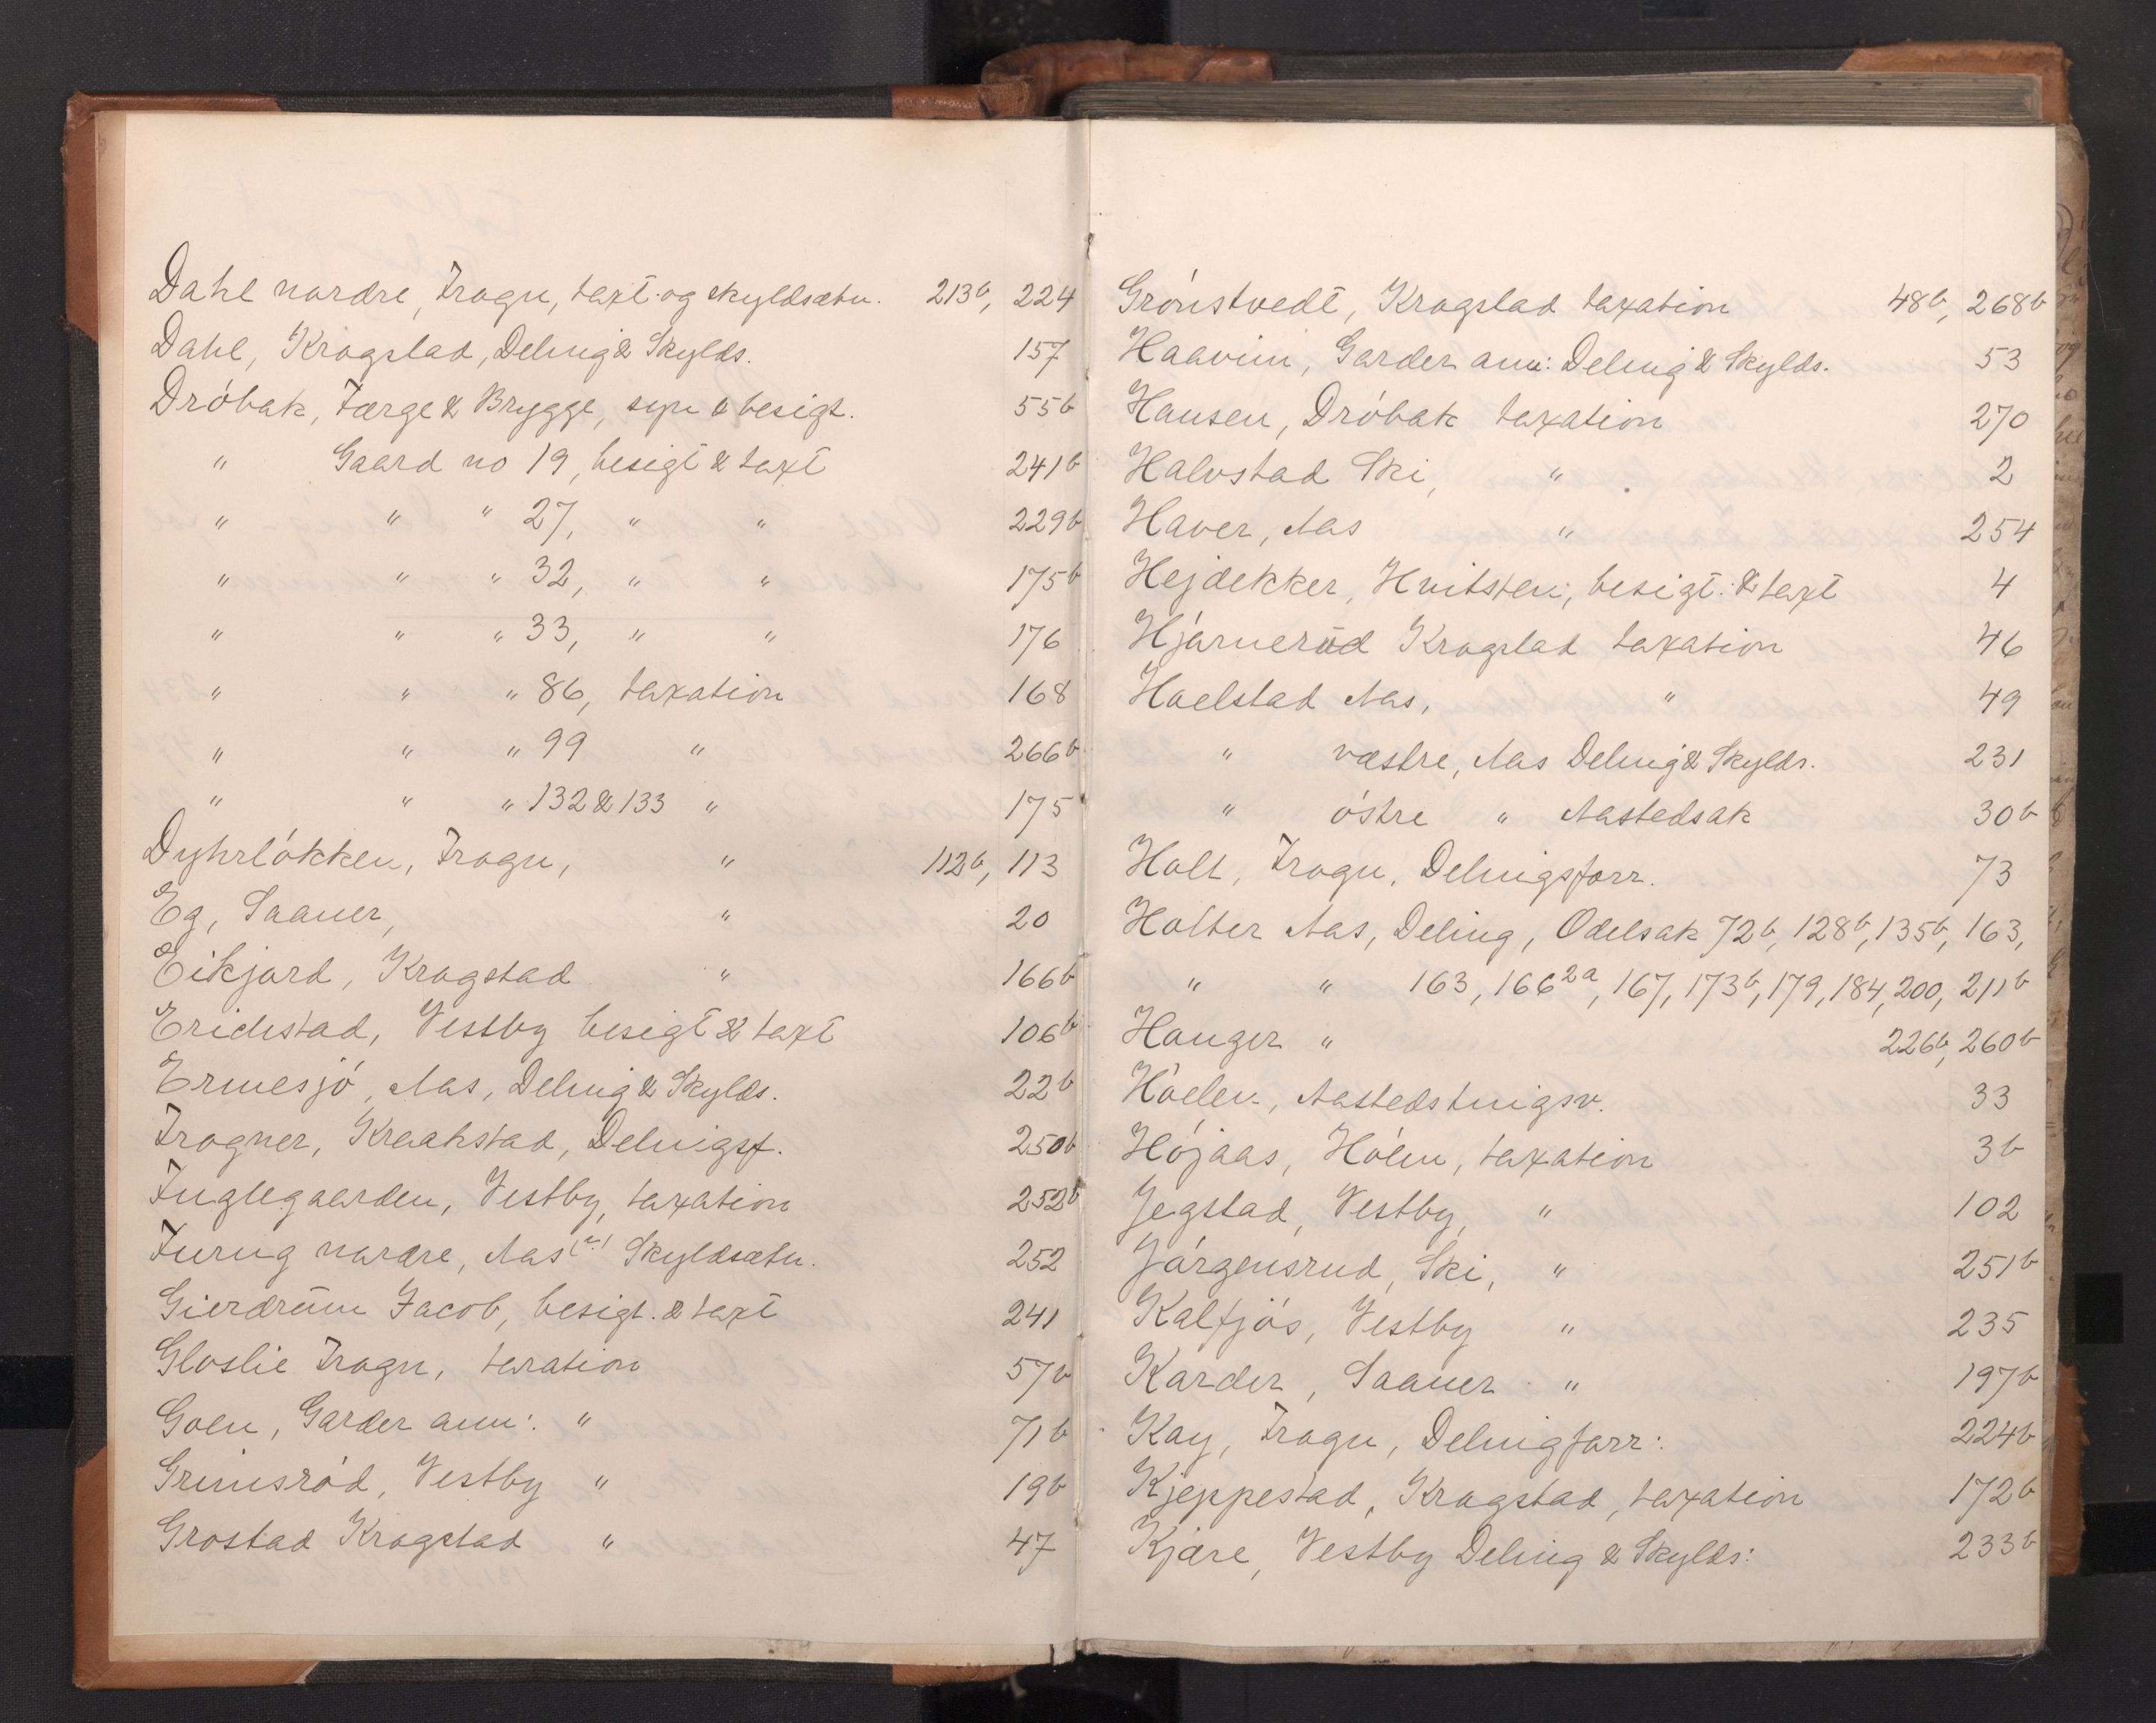 Dahl nordre, Frogn, taxt. og skyldsætn. 213b, 224
Dahl, Krogstad, Deling & Skylds. 157
Dröbak, Færge & Brygge, syn & besigt. 55b
" Gaard no 19, besigt & taxt 241b
" " " 27, " " 229b
" " " 32, " " 175b
" " " 33, " " 176
" " " 86, taxation 168
" " " 99 " 266b
" " " 132 & 133 " 175
Dyhrlökken, Frogn, " 112b, 113
Eg, Saaner, " 20
Eikjord, Krogstad " 166b
Eridestad, Vestby besigt & taxt 106b
Ermesjö, Aas, Deling & Skylds. 22b
Frogner, Kraakstad, Delingsf. 250b
Fuglegaarden, Vestby, taxation 252b
Furug nordre, Aas (?) Skyldsætn. 252
Gierdrum Jacob, besigt. & taxt 241
Gloslie Frogn, taxation 57b
Goen, Garder ann: " 71b
Grimsröd, Vestby " 19b
Grostad Krogstad " 47
Grönstvedt, Krogstad taxation 48b, 268b
Haavim, Garder ann: Deling & Skylds. 53
Hansen, Dröbak taxation 270
Halvstad Ski, " 2
Haver, Aas " 254
Hejdekker, Hvitsten, besigt: & taxt 4
Hjärneröd Krogstad taxation 46
Hoelstad Aas, " 49
" vestre, Aas Deling & Skylds. 231
" östre " Aastedsak 30b
Holt, Frogn, Delingsforr. 73
Holter Aas, Deling, Odelsak 72b, 128b, 135b, 163,
" " 163, 166 2a, 167, 173b, 179, 184, 200, 211b
Hauger " 226b, 260b
Höelen, Aastedstingsv. 33
Höjaas, Hölen, taxation 3b
Jegstad, Vestby, " 102
Jörgensrud, Ski, " 251b
Kalfjös, Vestby " 235
Karder, Saaner " 197b
Kay, Frogn, Delingforr: 224b
Kjeppestad, Krogstad, taxation 172b
Kjære, Vestby Deling & Skylds: 233b